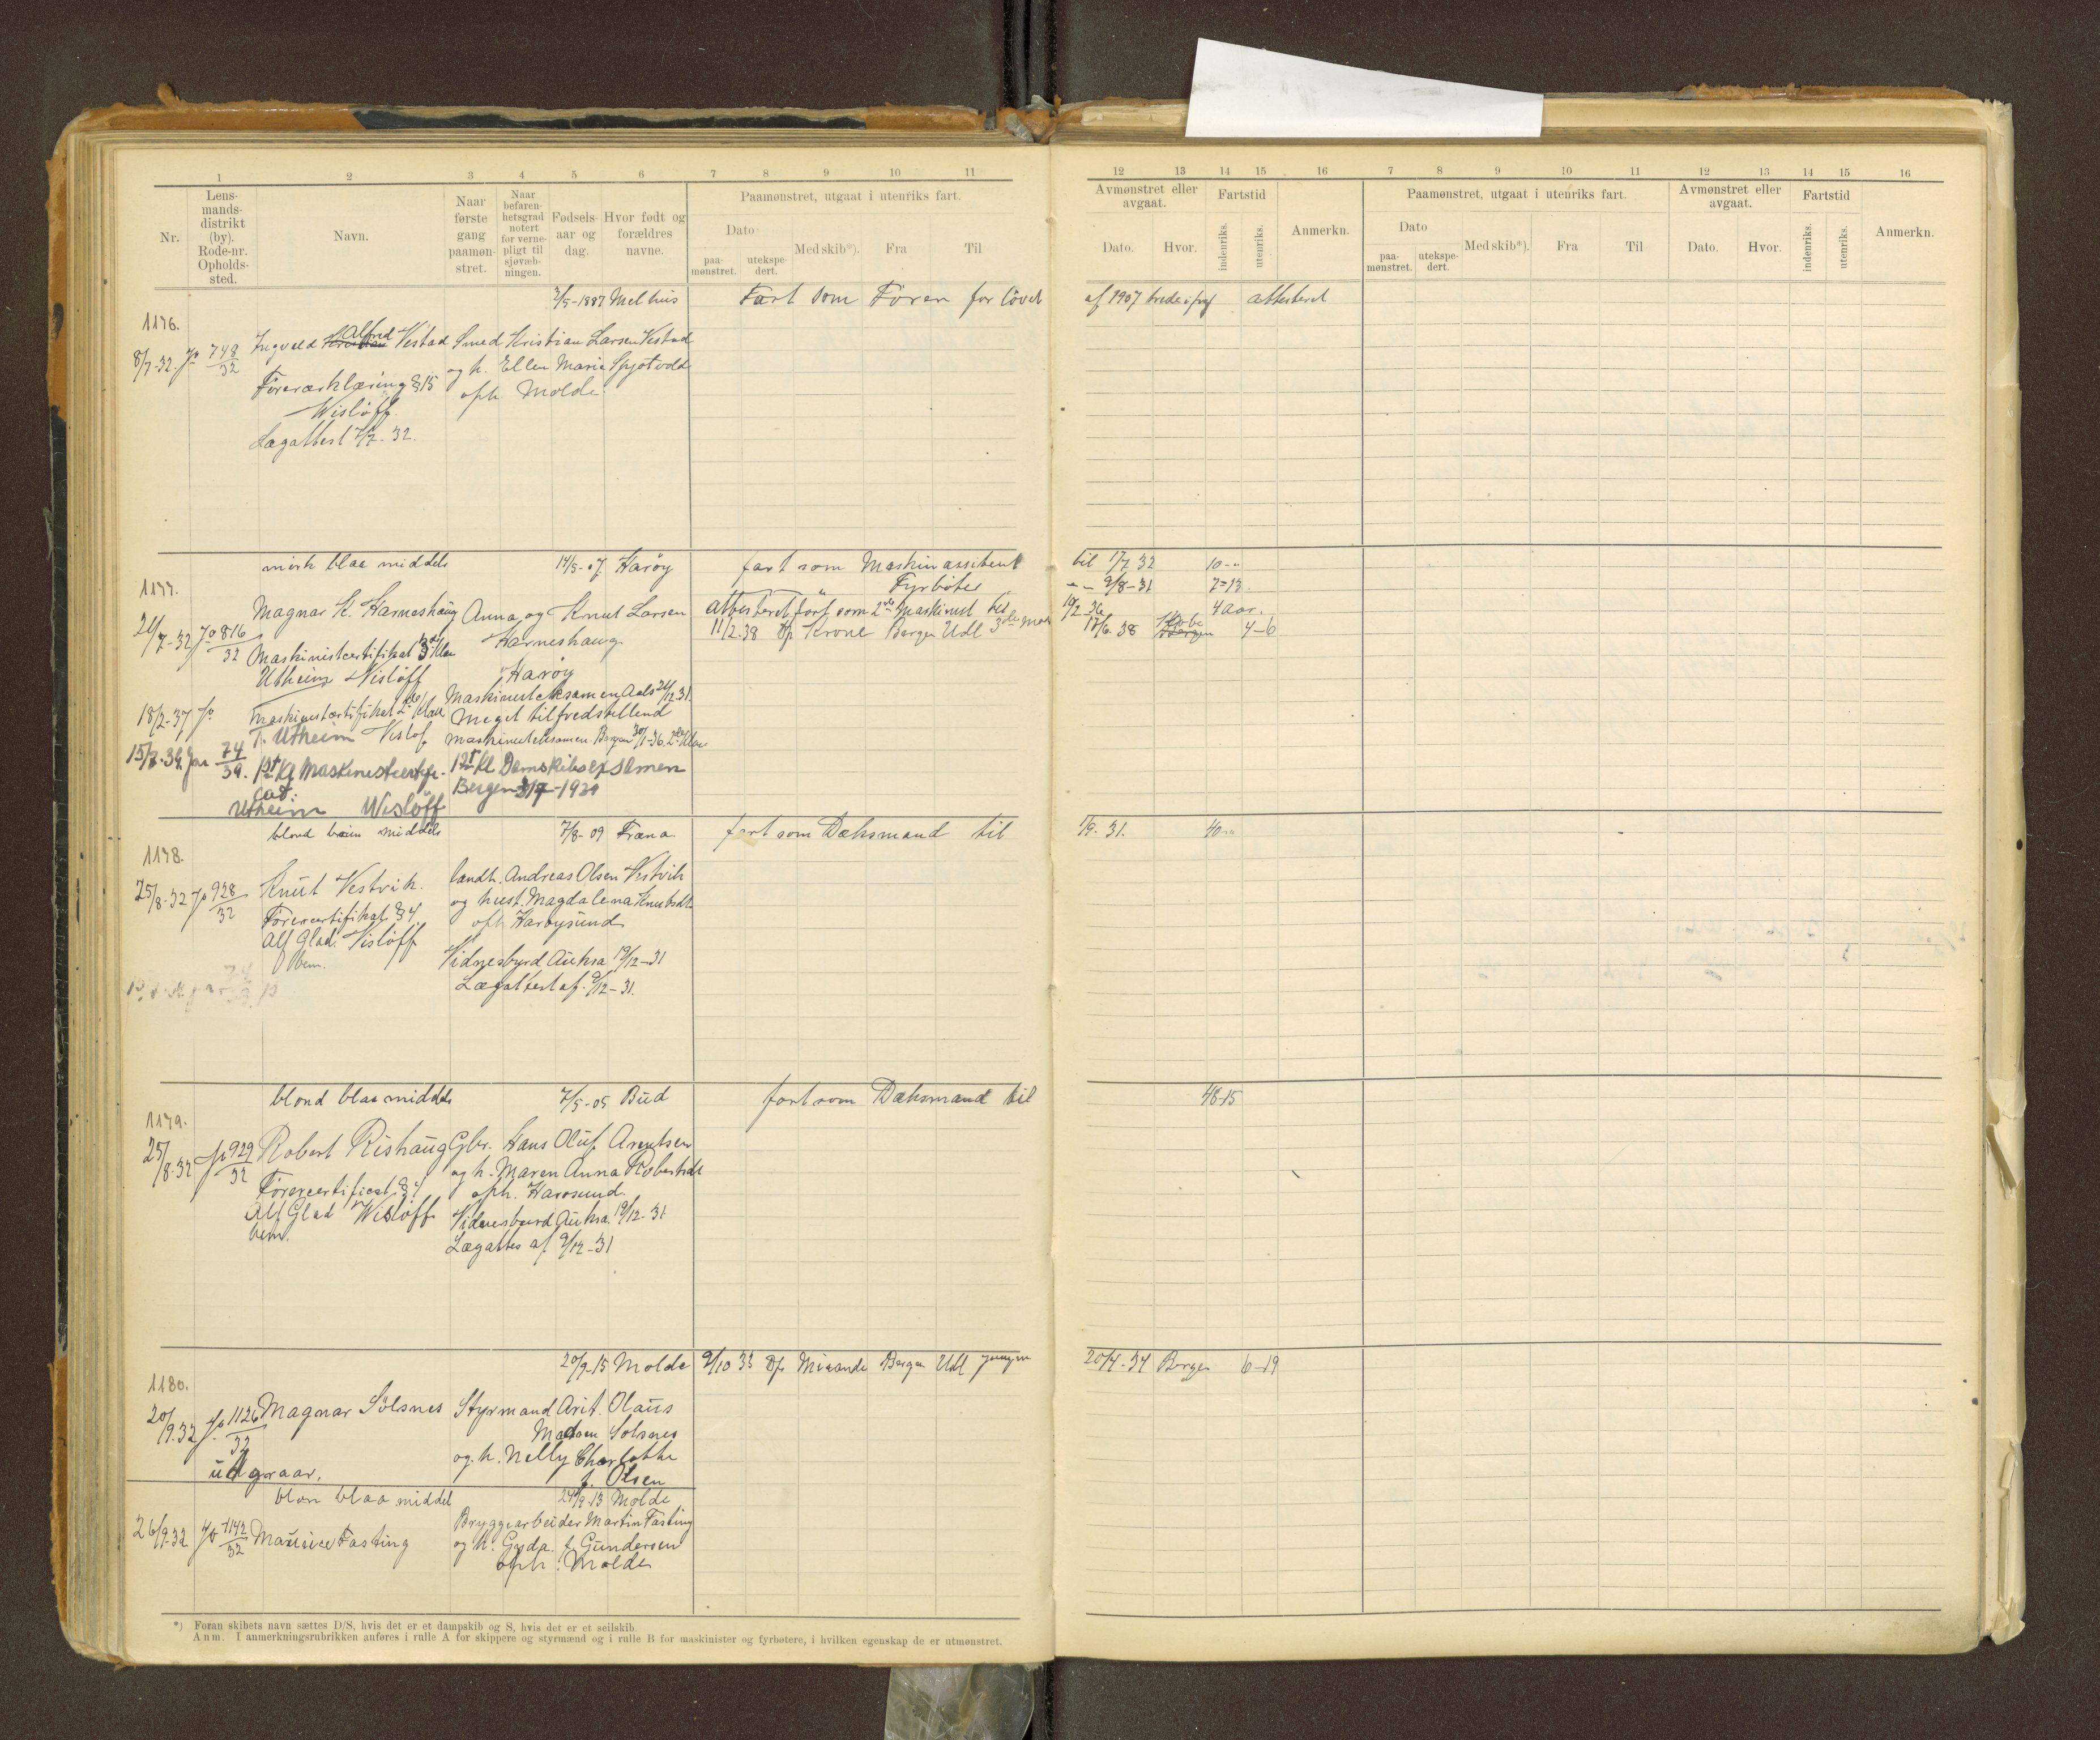 1 2 3 4 5 6 7 8 9 10 11
Nr.
Lens-
mands-
distrikt
(by).
Rode-nr.
Opholds-
sted.
Navn.
Naar
første
gang
paamøn-
stret.
Naar
befaren-
hetsgrad
notert
for verne-
pligt til
sjøvæb-
ningen.
Fødsels-
aar og
dag.
Hvor født og
forældres
navne.
Paamønstret, utgaat i utenriks fart.
Dato
paa-
mønstret.
utekspe-
dert.
Med skib*).
Fra
Til
12 13 14 15 16 7 8 9 10 11 12 13 14 15 16
Avmønstret eller
avgaat.
Dato.
Hvor.
Fartstid
indenriks.
utenriks.
Anmerkn.
Paamønstret, utgaat i utenriks fart.
Dato
paa-
mønstret.
utekspe-
dert.
Med skib*).
Fra
Til
Avmønstret eller
avgaat.
Dato.
Hvor.
Fartstid
indenriks.
utenriks.
Anmerkn.
/5-1887 Melhus Fart som Fører før lovet af 1907 attesteret
1176.
8/7-32. Jo 748/32 Ingvald Alfred Vestad Smed Kristian Larsen Vestad
og h. Ellen Marie Spjøtvold
Förererklæring § 15 oph Molde
Wisløff.
Lægattest 7/7-32.
mörk blaa middels 14/5-07 Harøy fart som Maskinassistent til 17/7 32 10-"
1177. Fyrbøter - - 9/8-31 7-13.
Magnar K. Harneshaug Anna og Knut Larsen attesteret fart som 2den Maskinist til 10/2 36 4 aar.
21/7-32 Jo 816/32 Harneshaug 11/2.38 D/s Krone Bergen Udl 3die mas 17/6 38 Bergen 4-6
Maskinistcertifikat 3die Klas
Utheim Wisløff Harøy
Maskinisteksamen Aals 21/12 31.
18/2-37 Jo Maskinistcertifikat 2den klas Meget tilfredstillend
T. Utheim Visløf Maskinisteksamen Bergen 30/1-36. 2den Klas
15/7-39 Jor 74/39. 1st Kl Maskinistcertifi- 1st Kl Damskibsexsamen
cat: Bergen
Utheim Wisløff
blond brun middels 7/8-09 Fræna fart som Dæksmand til 1/9-31. 40-
1178.
25/8-32 Jo 928/32 Knut Vestvik. landh. Andreas Olsen Vestvik
og hust. Magdalena Knutsdtr
Förercertifikat § 4 oph Harøysund
Alf Glad Visløff
bem. Vidnesbyrd Aukra 19/12-31
Lægattest af. 9/12-31.
blond blaa middels 7/5-05 Bud fart som Dæksmand til 48-15
1179.
25/8-32 Jo 929/32 Robert Rishaug Gbr. Hans Oluf Arentsen
og h. Maren Anna Robertsdt
Förercertificat § 4 oph. Harøsund
Alf Glad Wisløff Vidnesbyrd Aukra 19/12-31
bem. Lægattes af 9/12-31
20/9-15 Molde 9/10 33 D/s Mirande Bergen Udl Jungm 20/4-34 Bergen 6-19
1180.
20/9.32 Jo 1126/32 Magnar Sølsnes Styrmand Arit. Olaus
Madsen Solsnes
og h. Nelly Charlotte
udgaar. f. Olsen
blon blaa middel 24/9-13 Molde
26/9-32 Jo 1142/32 Maurice Fasting Bryggearbeider Martin Fasting
og h. Gyda f Gundersen
oph: Molde
*) Foran skibets navn sættes D/S, hvis det er et dampskib og S, hvis det er et seilskib.
Anm. I anmerkningsrubrikken anføres i rulle A for skippere og styrmænd og i rulle B for maskinister og fyrbøtere, i hvilken egenskap de er utmønstret.